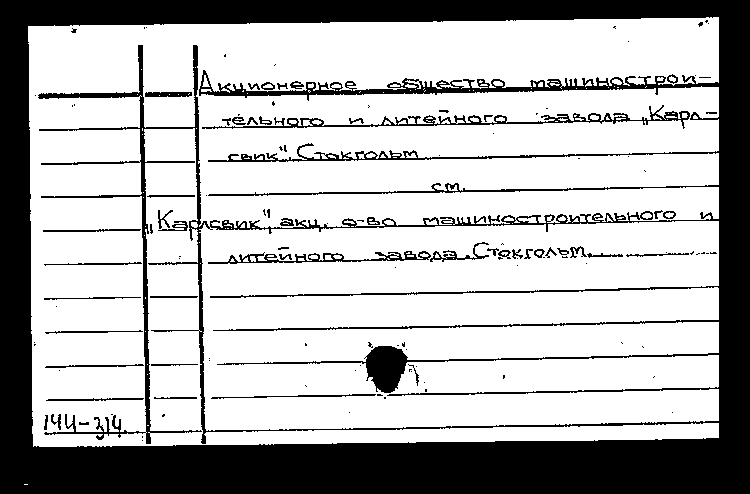 Акционерное общество машинострои-
тельного и литейного завода „Карл-
свик". Стокгольм
см.
„Карлсвик", акц. о-во машиностроительного и
литейного завода. Стокгольм.
144-314.